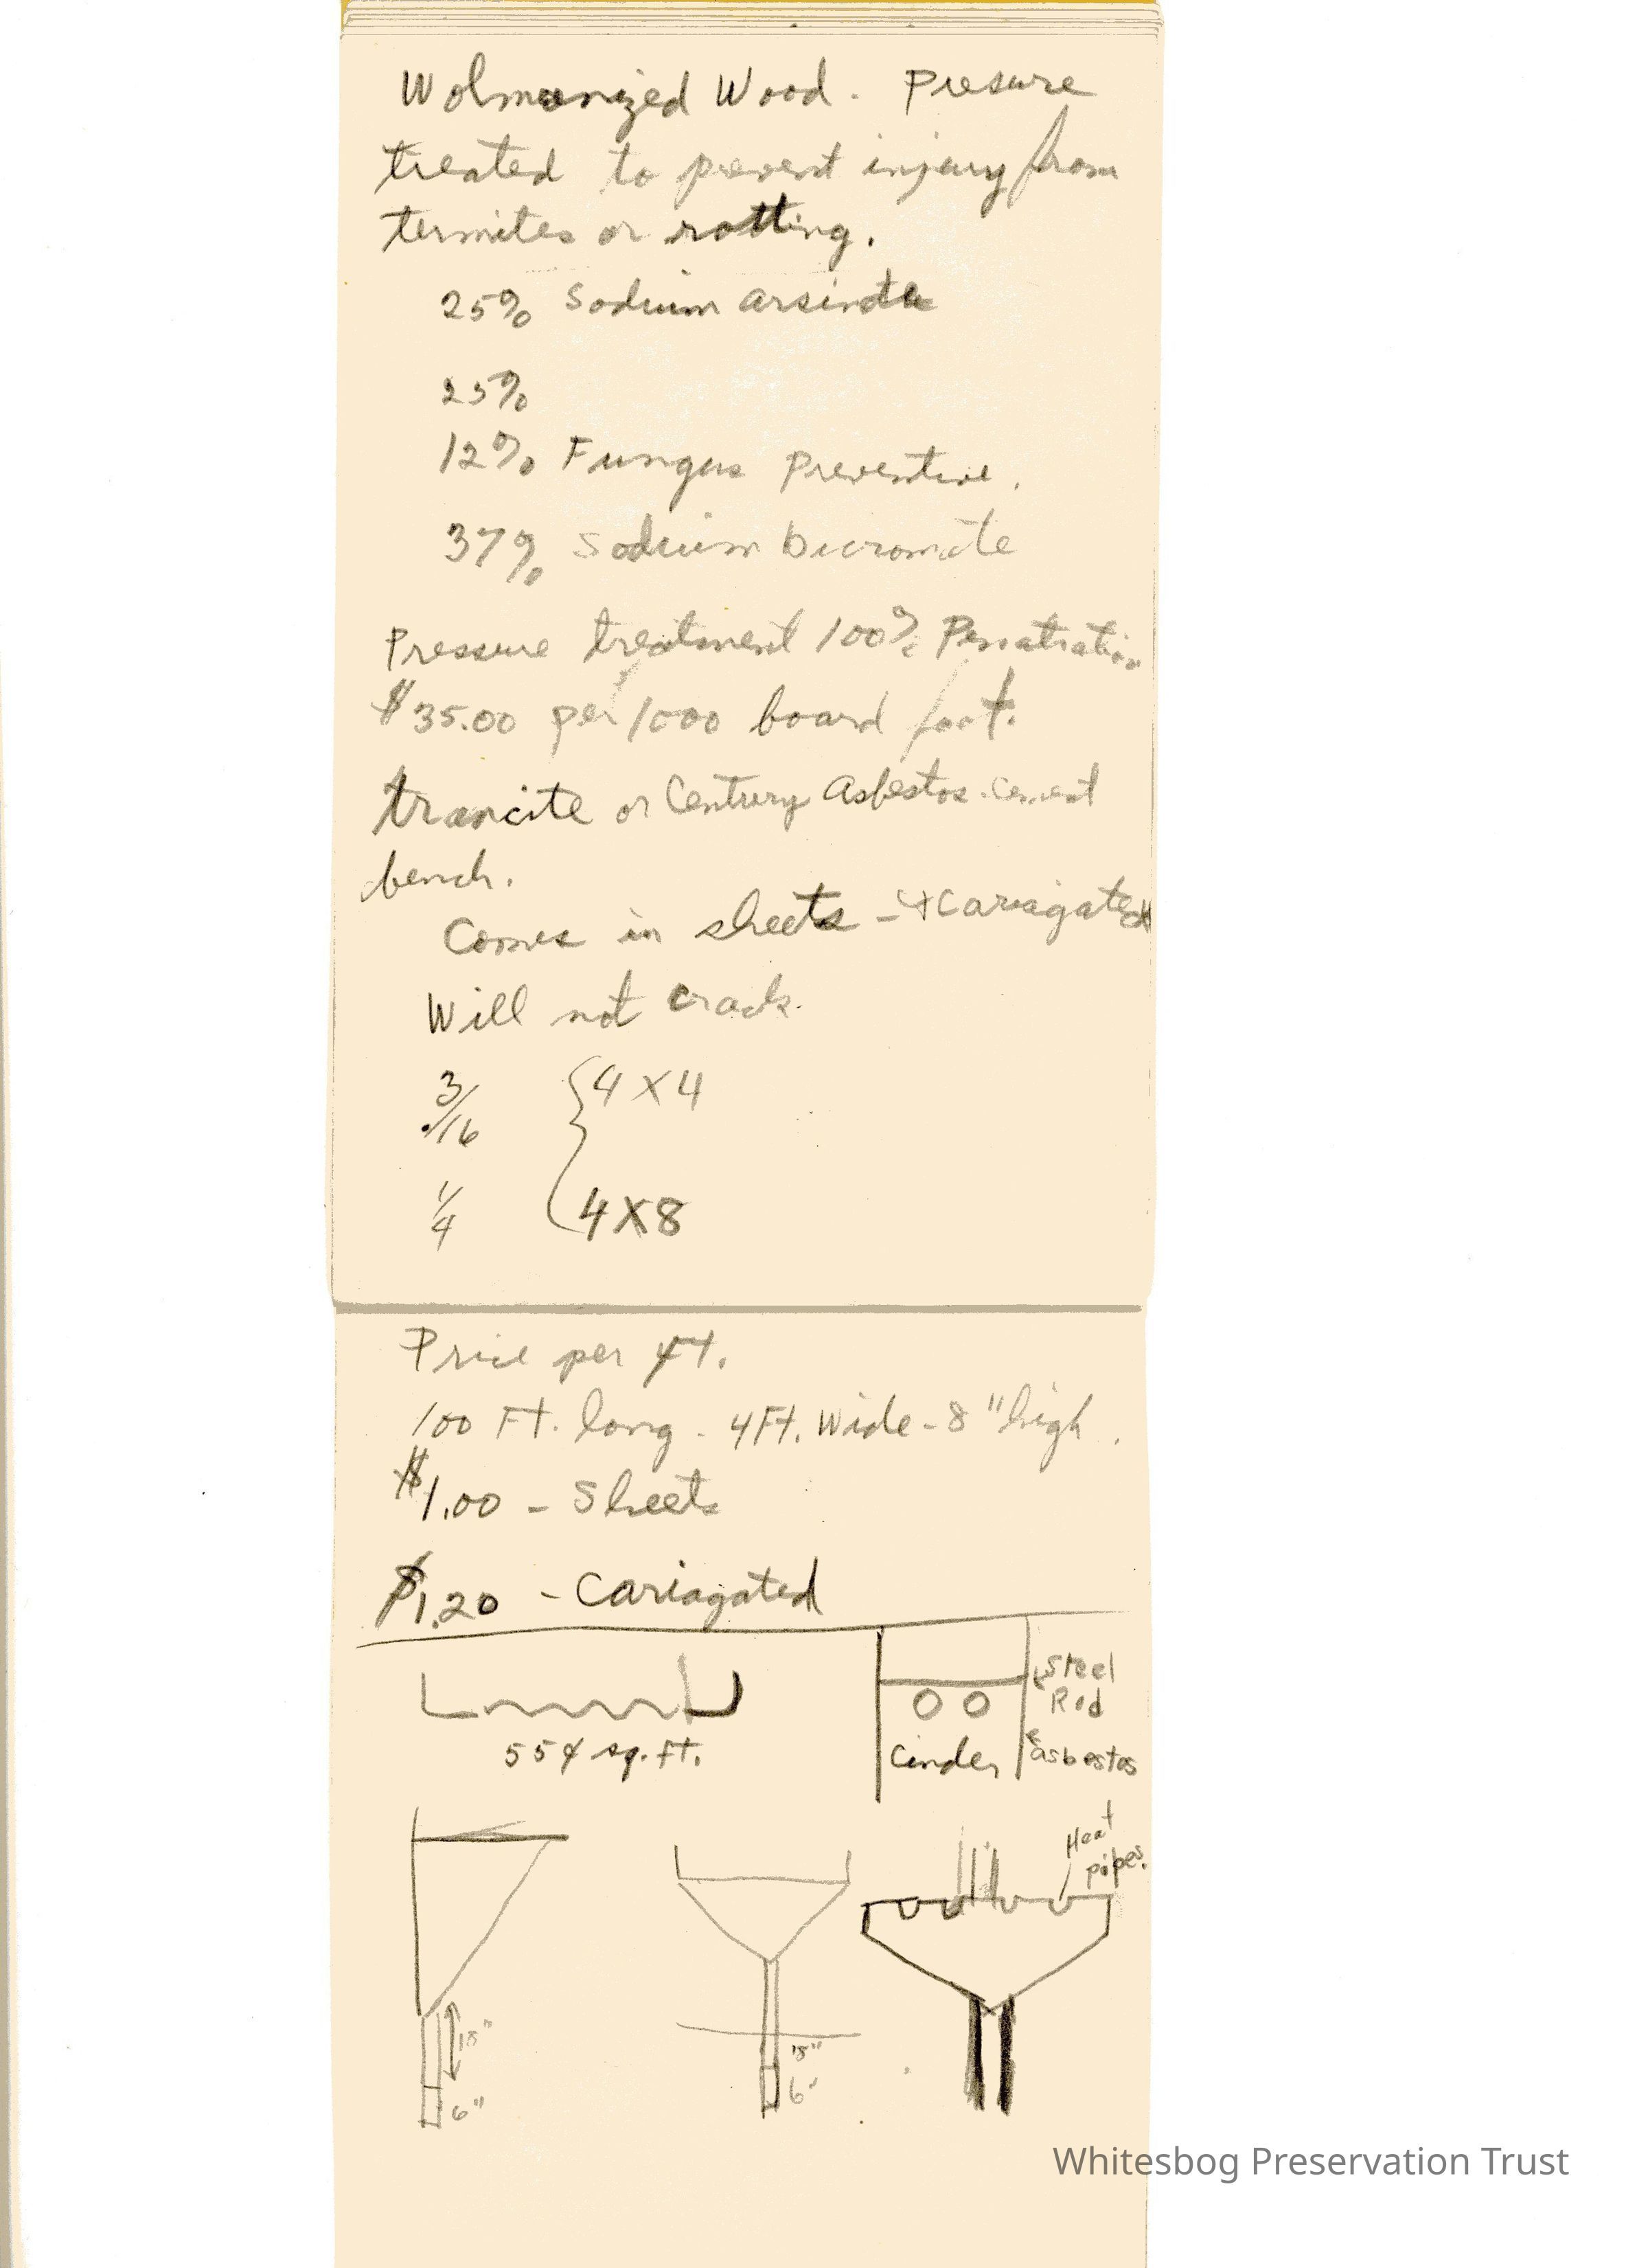 Wolmanized Wood. Presure
treated to prevent injury from
termites or rotting.
25% Sodium arsinate
25%
12% Fungus Preventive.
37% Sodium Dicromate
Pressure treatment 100% Penatration
$35.00 per 1000 board foot.
trancite or Century Asbestos-cement
bench.
Comes in sheets - + Cariagated
Will not crack.
3/16 4 X 4
1/4 4 X 8
Price per ft.
100 Ft. long - 4 Ft. Wide - 8" high.
$1.00 - Sheets
$1.20 - Cariagated
Steel
Rod
Cinder
asbestos
55¢ sq. ft.
Heat
pipes.
18"
6"
18"
6"
Whitesbog Preservation Trust